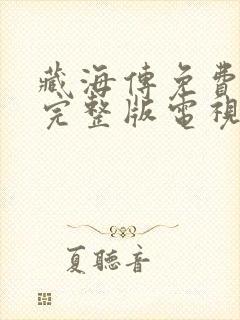 藏海傳免費
完整版電視
夏聽音